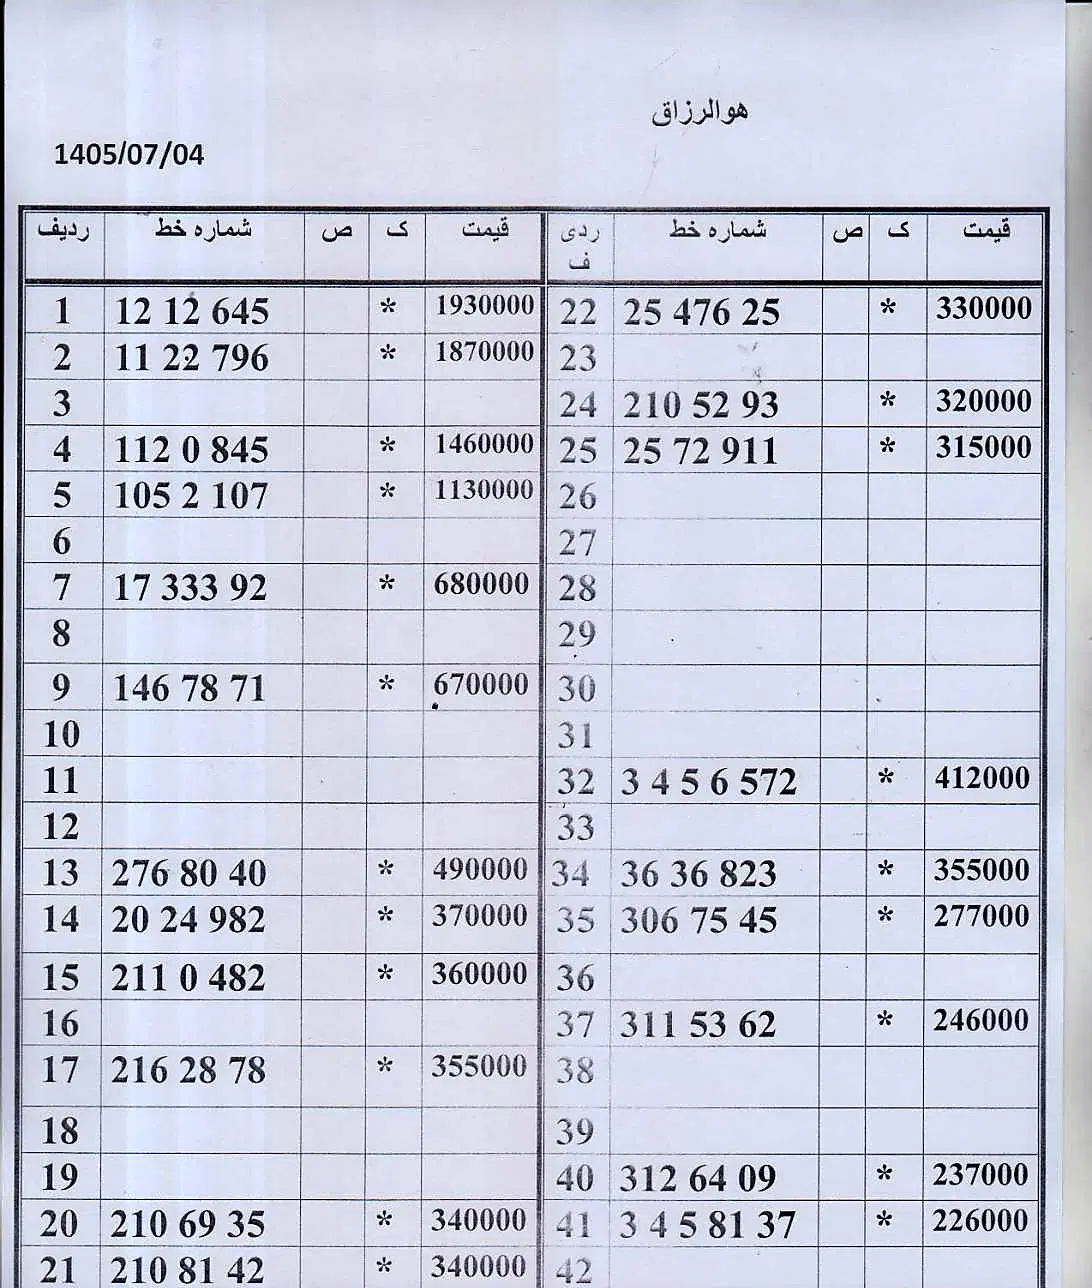 هوالرزاق
1405/07/04
ردیف شماره خط ص ک قیمت ردی ف شماره خط ص ک قیمت
1 12 12 645 * 1930000 22 25 476 25 * 330000
2 11 22 796 * 1870000 23
3 24 210 52 93 * 320000
4 112 0 845 * 1460000 25 25 72 911 * 315000
5 105 2 107 * 1130000 26
6 27
7 17 333 92 * 680000 28
8 29
9 146 78 71 * 670000 30
10 31
11 32 3 4 5 6 572 * 412000
12 33
13 276 80 40 * 490000 34 36 36 823 * 355000
14 20 24 982 * 370000 35 306 75 45 * 277000
15 211 0 482 * 360000 36
16 37 311 53 62 * 246000
17 216 28 78 * 355000 38
18 39
19 40 312 64 09 * 237000
20 210 69 35 * 340000 41 3 4 5 81 37 * 226000
21 210 81 42 * 340000 42